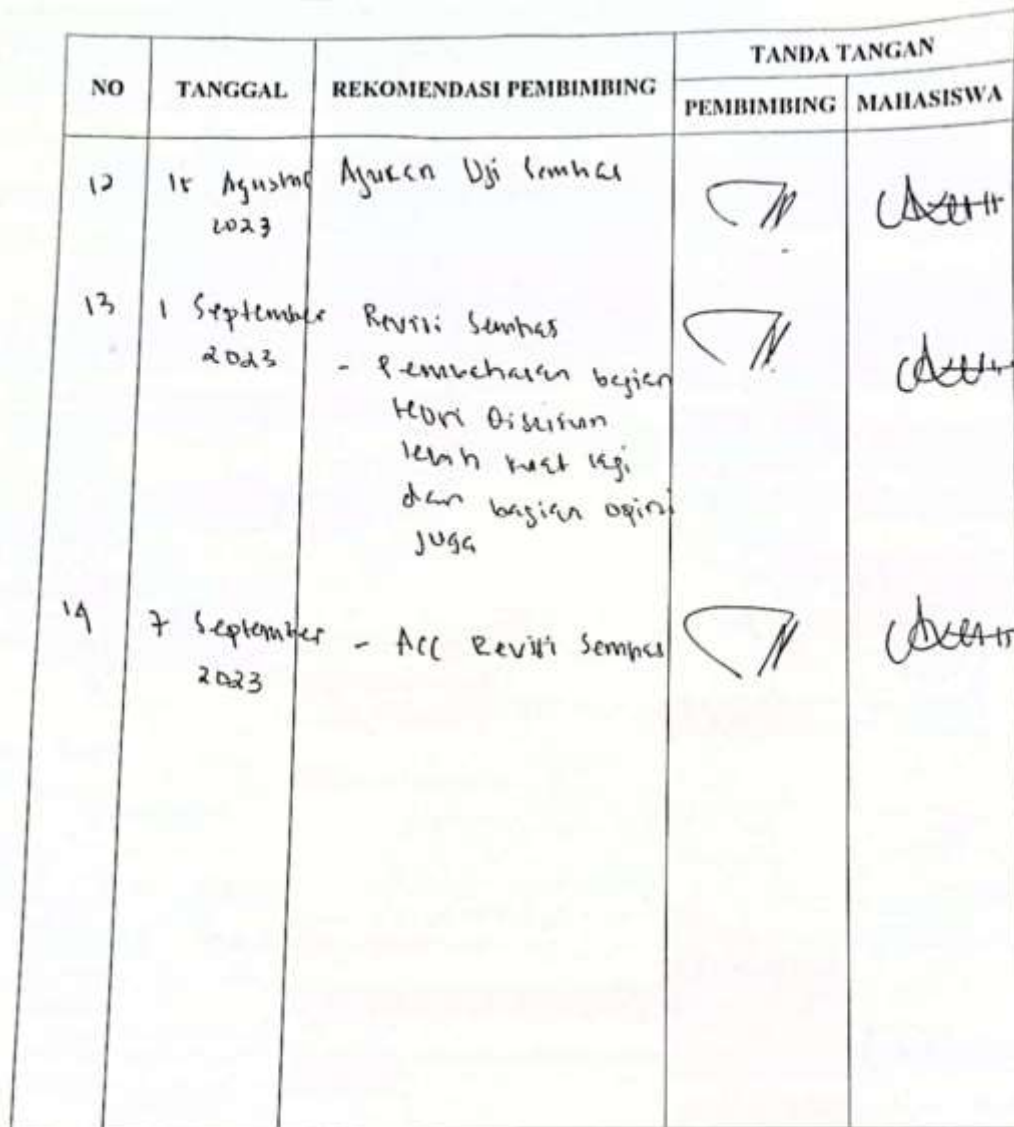 NO TANGGAL REKOMENDASI PEMBIMBING TANDA TANGAN
PEMBIMBING MAHASISWA
12 Agustus Ajukan Uji Semhas
2023
13 1 September Revisi Semhas
2023 - Pembahasan bagian
teori Disusun
lebih kuat lagi
dan bagian opini
juga
14 7 September - Acc Revisi Semhas
2023